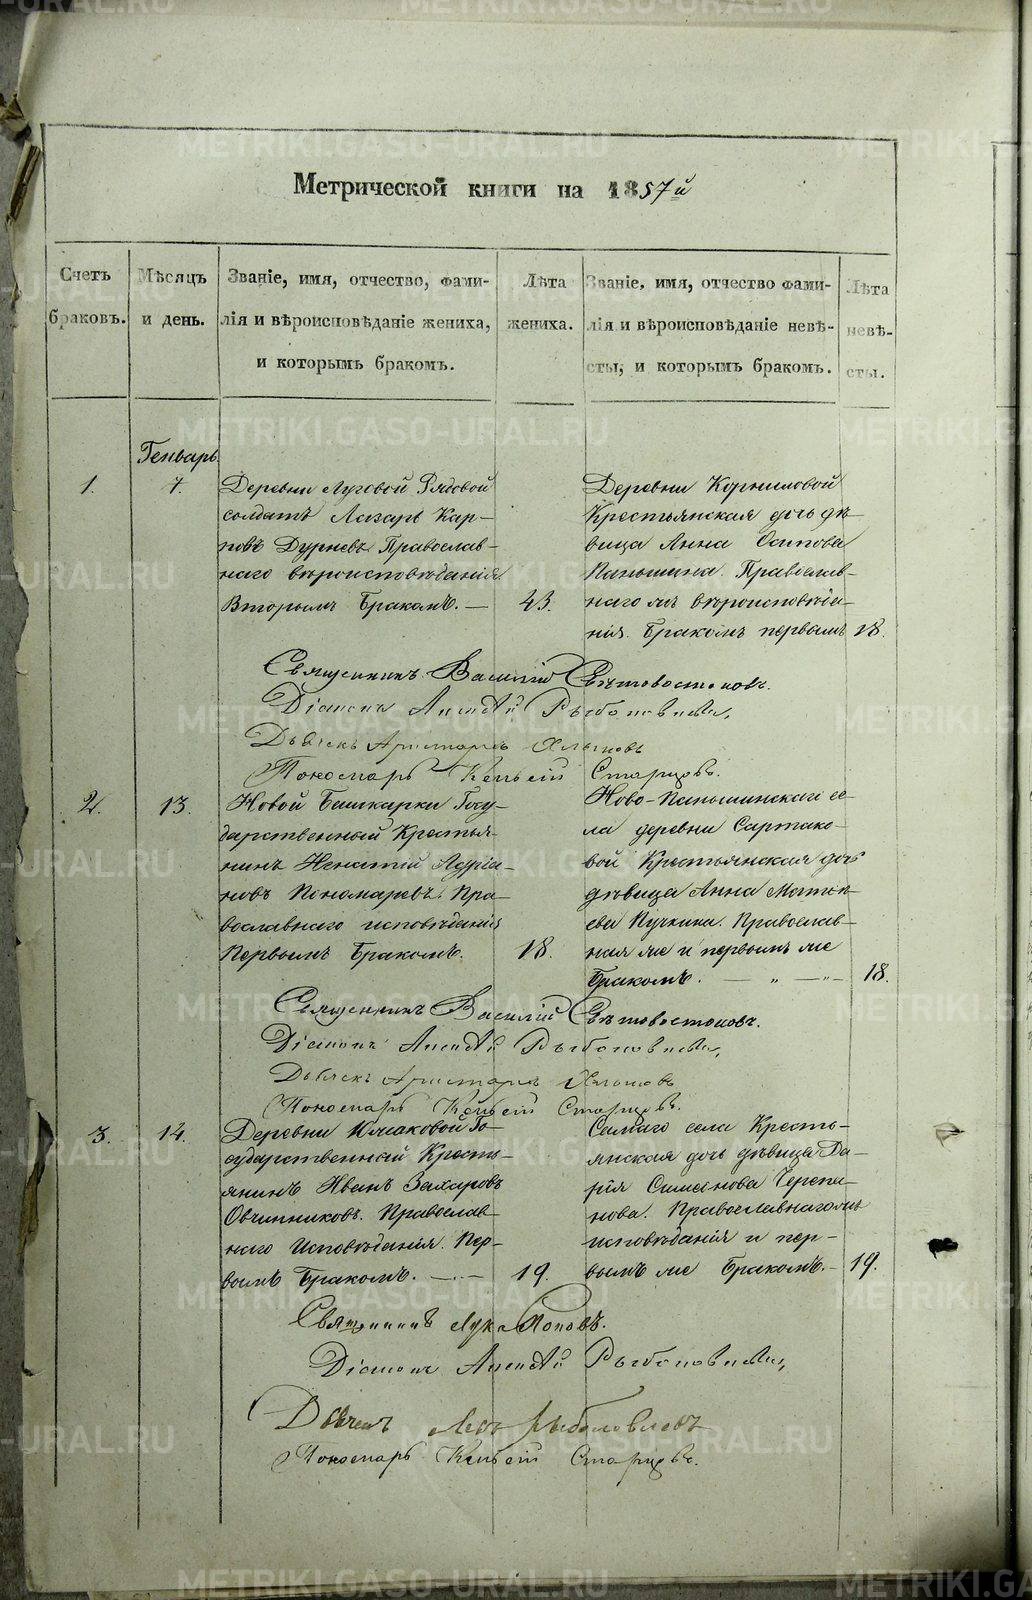 Метрической книги на 1857й
Счетъ браковъ.
Мѣсяцъ и день.
Званіе, имя, отчество, фами-
лія и вѣроисповѣданіе жениха,
и которымъ бракомъ.
Лѣта жениха.
Званіе, имя, отчество фами-
лія и вѣроисповѣданіе невѣ-
сты, и которымъ бракомъ.
Лѣта невѣ-
сты.
Генварь.
1.
7.
Деревни Луговой Рядовой
солдатъ Лазарь Кар-
повъ Дурневъ Православ-
наго вѣроисповѣданія
Вторымъ Бракомъ. —
43.
Деревни Корниловой
Крестьянская дочь дѣ-
вица Анна Осипова
Паньшина. Православ-
наго же вѣроисповѣда-
нія. Бракомъ первымъ
18.
Священникъ Василій Свѣтовостоковъ.
Діаконъ Алексѣй Рыболовлевъ,
Дьячекъ Аристархъ Хлыновъ
Пономарь Старцовъ.
2.
13.
Новой Башкарки Госу-
дарственный Крестья-
нинъ Игнатій Адріа-
новъ Пономаревъ. Пра-
вославнаго исповѣданія
Первымъ Бракомъ.
18.
Ново-Паньшинскаго се-
ла деревни Сартако-
вой Крестьянская дочь
дѣвица Анна Матвѣ-
ева Пучкина. Православ-
ная же и первымъ же
Бракомъ. — „ — „ —
18.
Священникъ Василій Свѣтовостоковъ.
Діаконъ Алексѣй Рыболовлевъ,
Дьячекъ Аристархъ Хлыновъ
Пономарь Старцовъ.
3.
14.
Деревни Кулаковой Го-
сударственный Кресть-
янинъ Иванъ Захаровъ
Овчинниковъ. Православ-
наго Исповѣданія. Пер-
вымъ Бракомъ. —
19.
Самаго села Кресть-
янская дочь дѣвица Да-
рія Симеонова Черепа-
нова. Православнаго же
исповѣданія и пер-
вымъ же Бракомъ. —
19.
Священникъ Лука Поповъ.
Діаконъ Алексѣй Рыболовлевъ,
Дьячекъ Левъ Рыболовлевъ
Пономарь Старцовъ.
METRIKI.GASO-URAL.RU